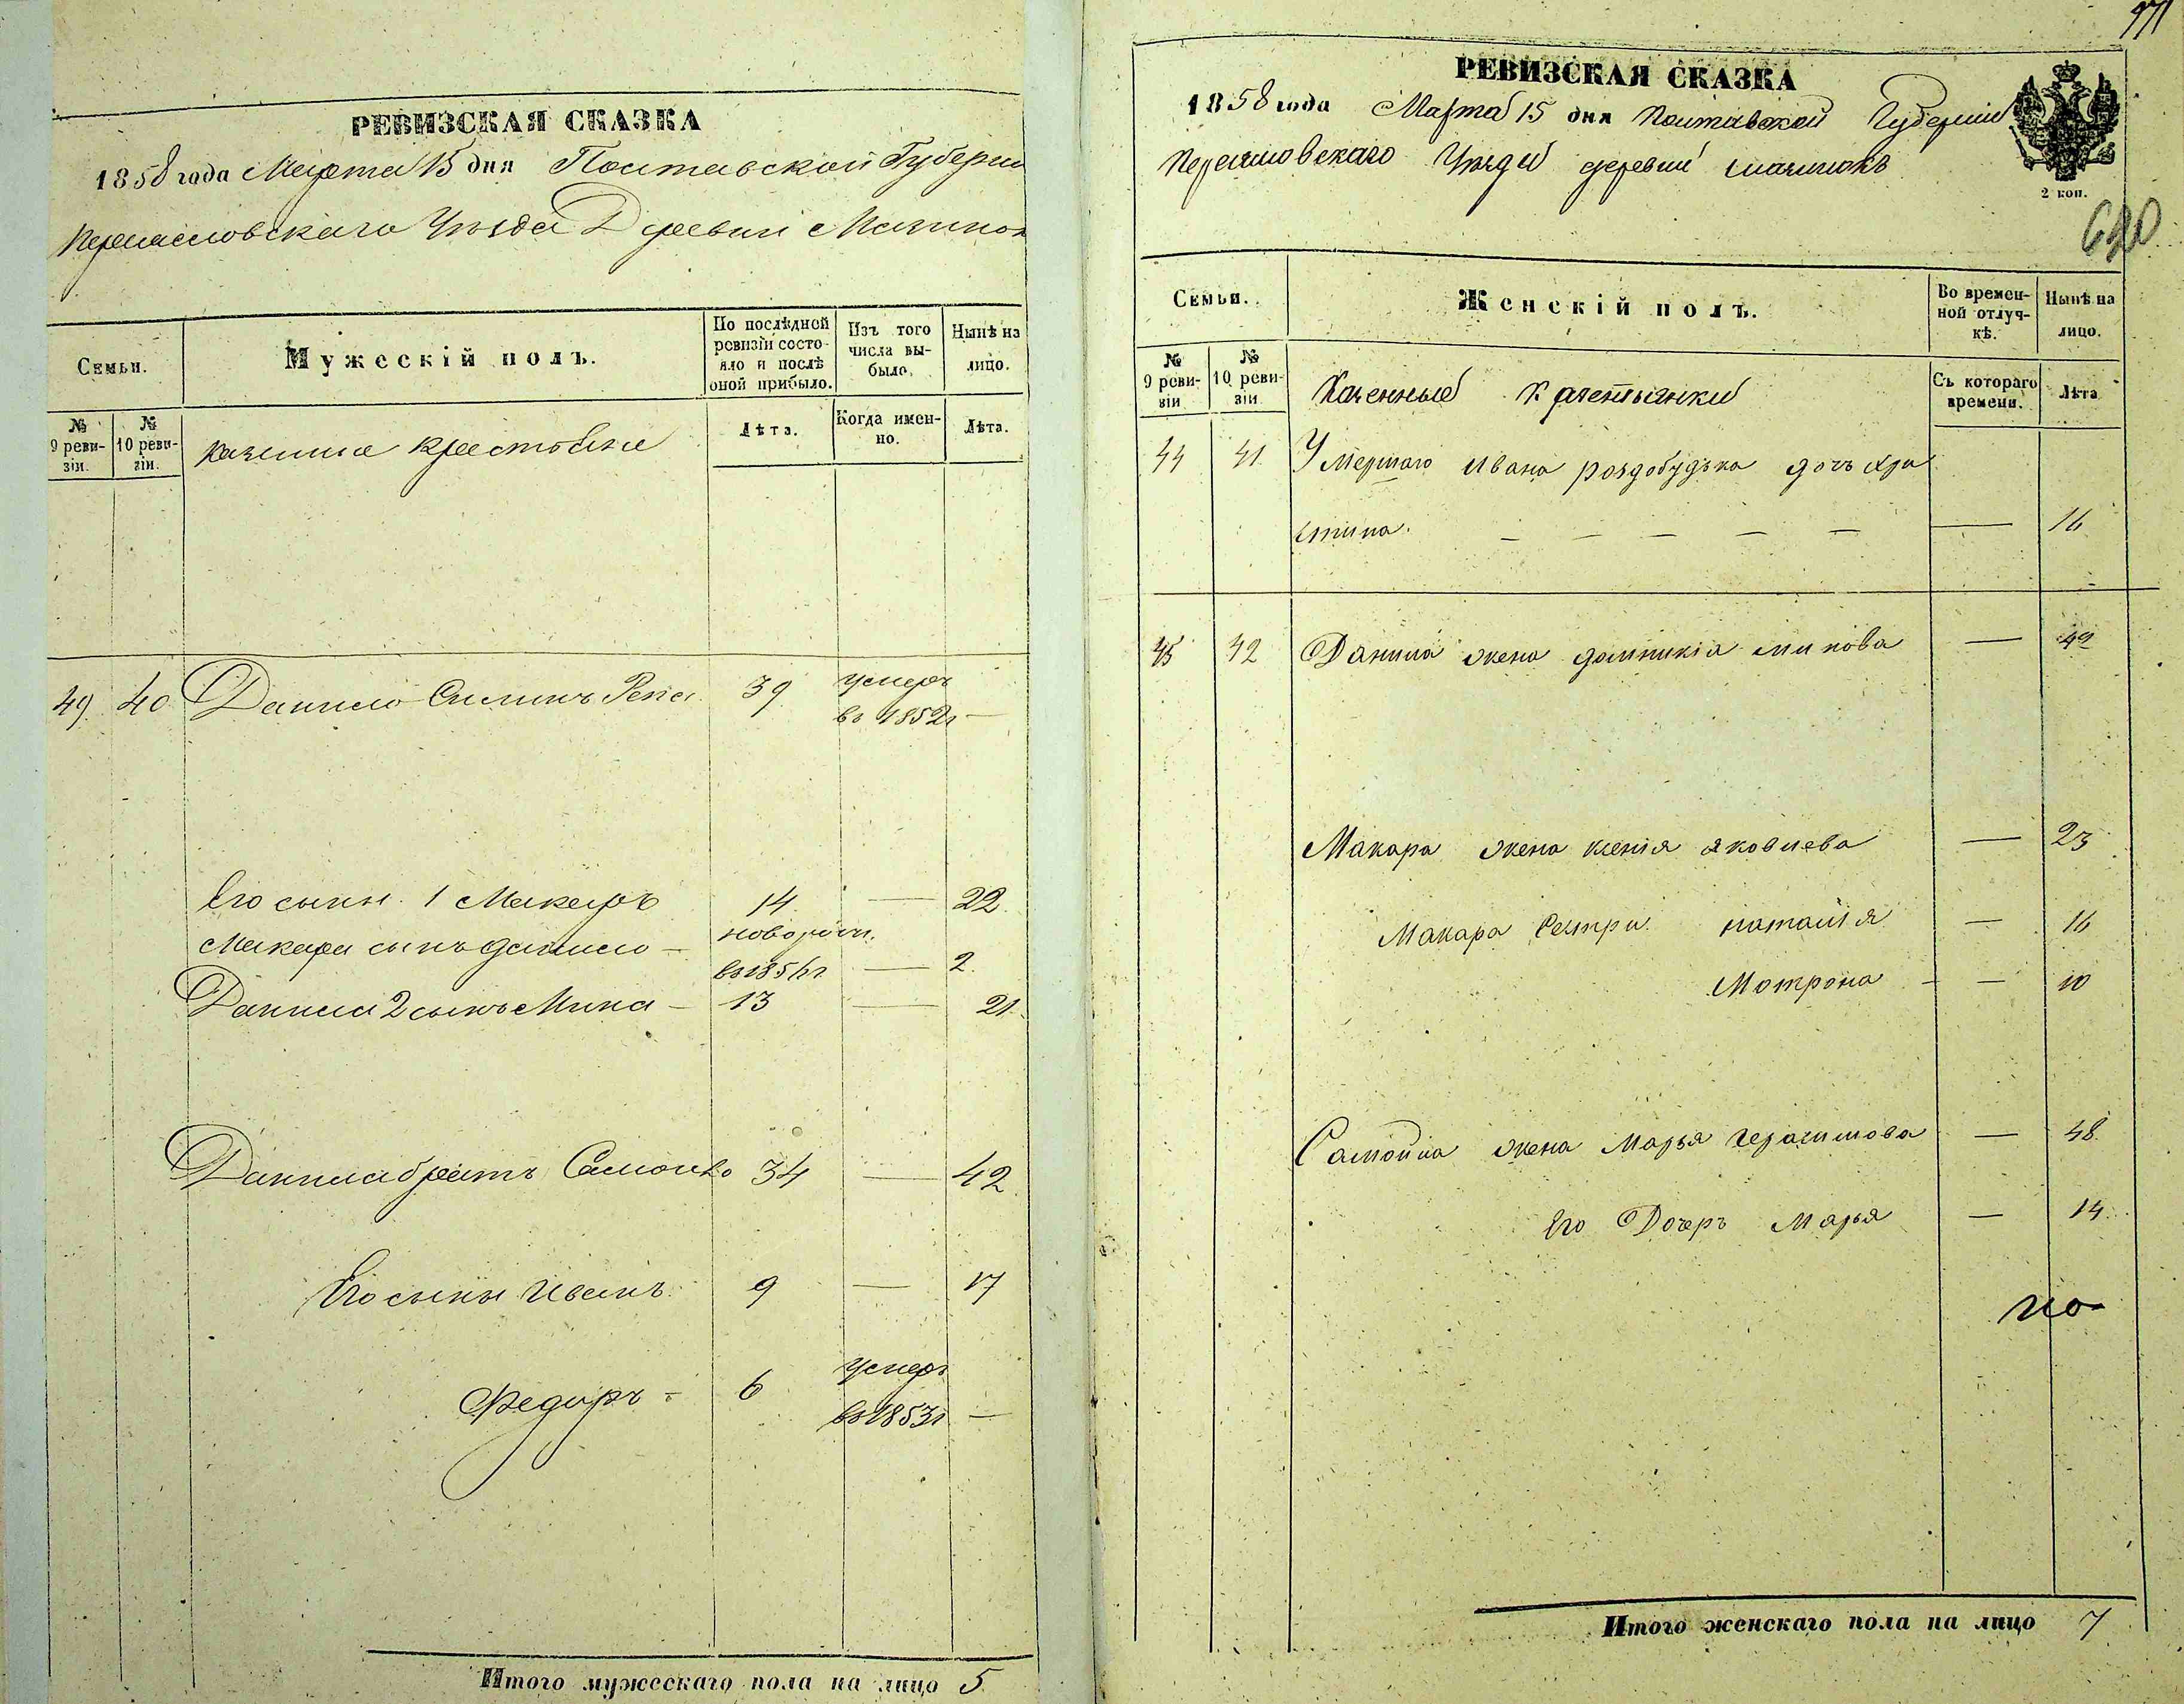 РЕВИЗСКАЯ СКАЗКА
1858 года Марта 15 дня Полтавской Губерніи
Переяславскаго Уѣзда Деревни
Семьи.
Мужескій полъ.
По послѣдней ревизіи состояло и послѣ оной прибыло.
Изъ того числа выбыло.
Нынѣ на лицо.
№ 9 ревизіи.
№ 10 ревизіи.
казенные крестьяне
Лѣта.
Когда именно.
Лѣта.
49 40 Данило Силинъ Репа 39 умеръ
въ 1852г —
Его сыны 1 Макаръ 14 — 22
Макара сынъ Данило — новорож.
въ 1856г — 2
Данила 2 сынъ Мина — 13 — 21
Данила братъ Самойло 34 — 42
Его сыны Иванъ 9 — 17
Федоръ — 6 умеръ
въ 1853г —
Итого мужескаго пола на лицо 5
971
РЕВИЗСКАЯ СКАЗКА
1858 года Марта 15 дня Полтавской Губерніи
Переяславскаго Уѣзда деревни
2 коп.
690
Семьи.
Женскій полъ.
Во временной отлучкѣ.
Нынѣ на лицо.
№ 9 ревизіи
№ 10 ревизіи
Казенные крестьянки
Съ котораго времени.
Лѣта
44 41 Умершаго Ивана роздобудька дочь Хри
стина. — — — — — — 16
45 42 Данила жена домникія минова — 49
Макара жена ксенія яковлева — 23
Макара Сестри наталія — 16
Мотрона — — 10
Самойла жена Марья герасимова — 48
Его Дочерь Марья — 14
Итого женскаго пола на лицо 7